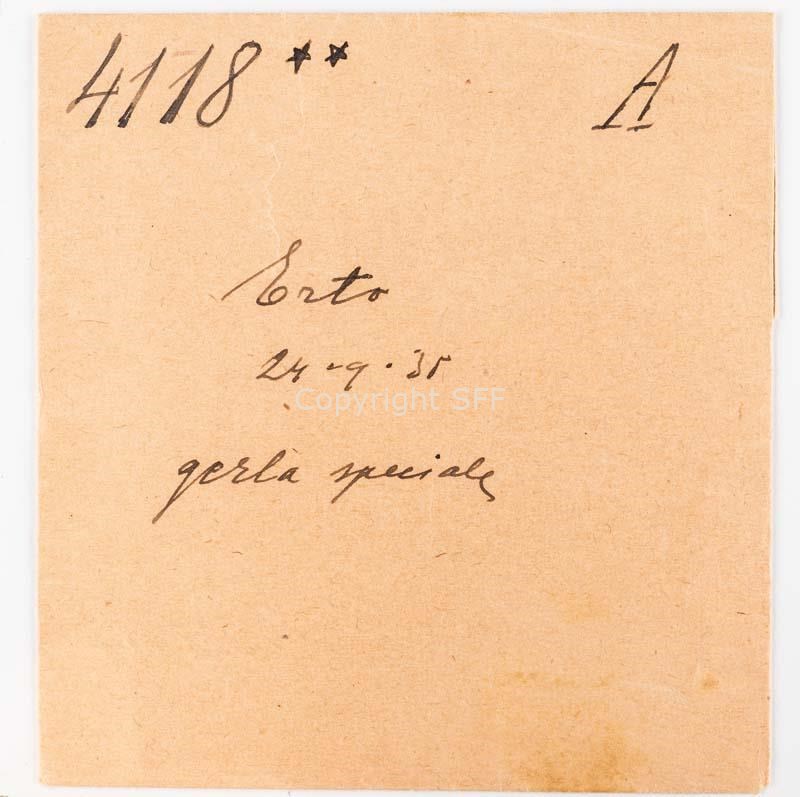 4118** A
Erto
24-9.35
Copyright SFF
gerla speciale